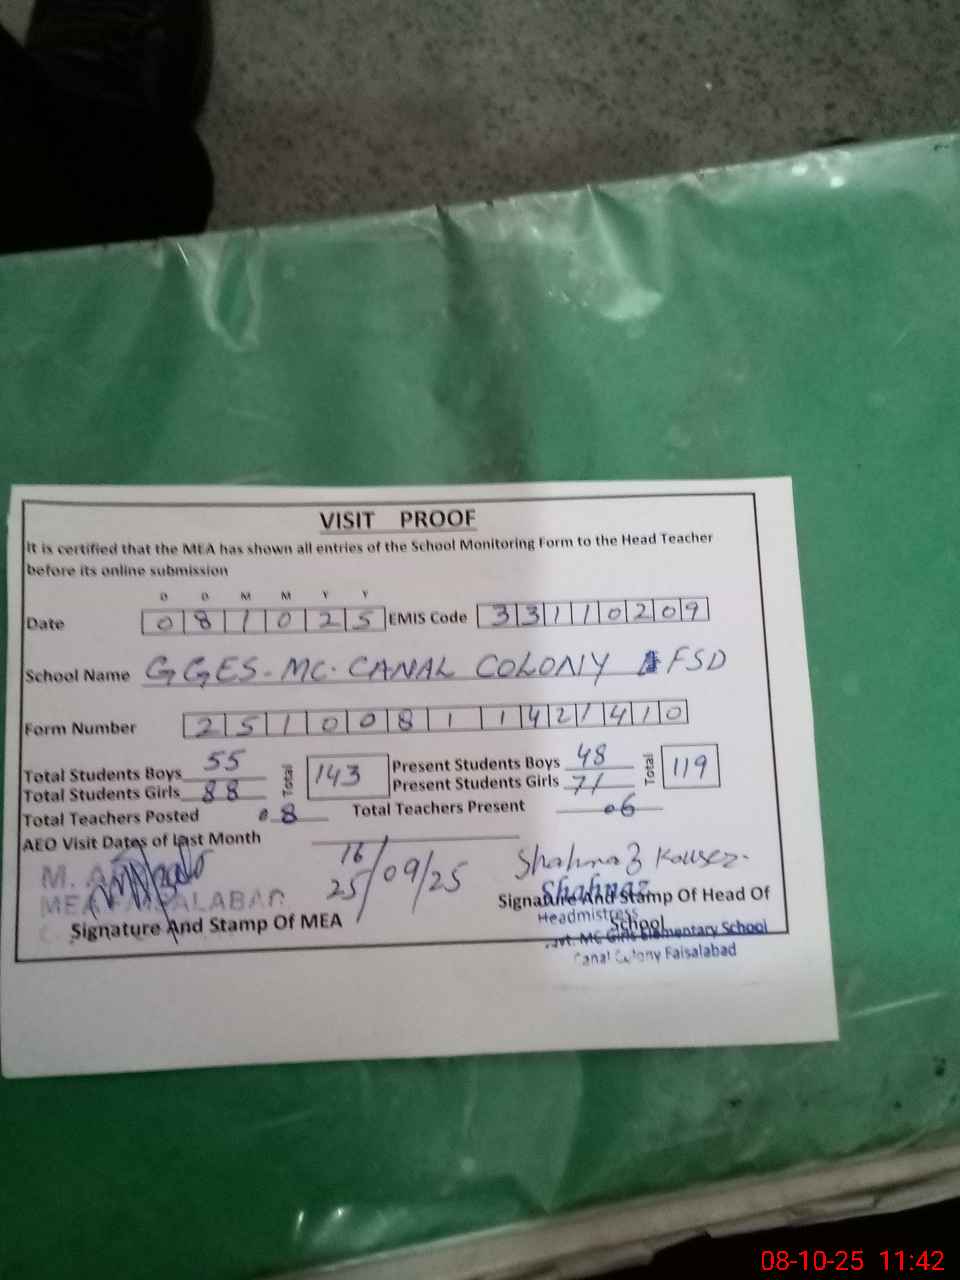 VISIT PROOF
It is certified that the MEA has shown all entries of the School Monitoring Form to the Head Teacher
before its online submission
D D M M Y Y
Date 0 8 1 0 2 5 EMIS Code 3 3 1 1 0 2 0 9
School Name GGES. MC. CANAL COLONY FSD
Form Number 2 5 1 0 0 8 1 1 4 2 1 4 1 0
Total Students Boys 55 Total 143 Present Students Boys 48 Total 119
Total Students Girls 88 Present Students Girls 71
Total Teachers Posted 08 Total Teachers Present 06
AEO Visit Dates of last Month
16
25/09/25
Shahnaz Kouser.
M.
MEA FAISALABAD
Shahnaz
Signature And Stamp Of MEA
Signature And Stamp Of Head Of
School
Headmistress
Govt. MC Girls Elementary School
Canal Colony Faisalabad
08-10-25 11:42